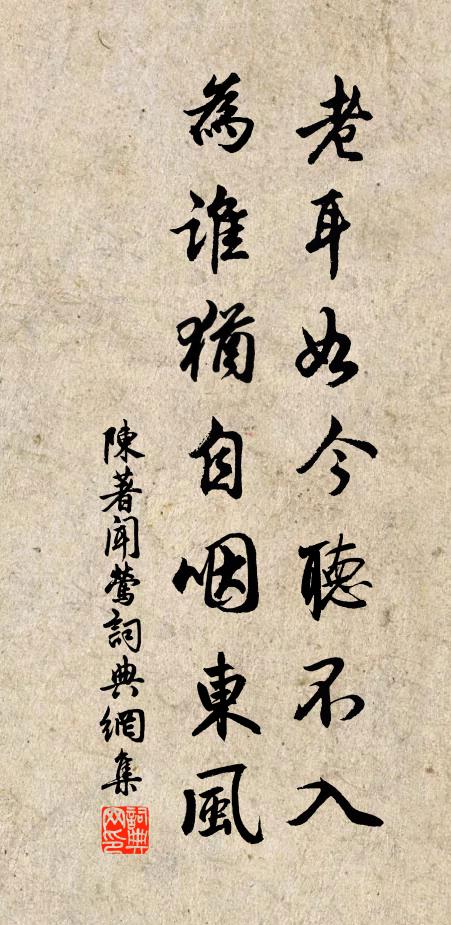 老耳如今聽不入
為誰猶自咽東風
陳著聞鶯詞典網集
詞典网印